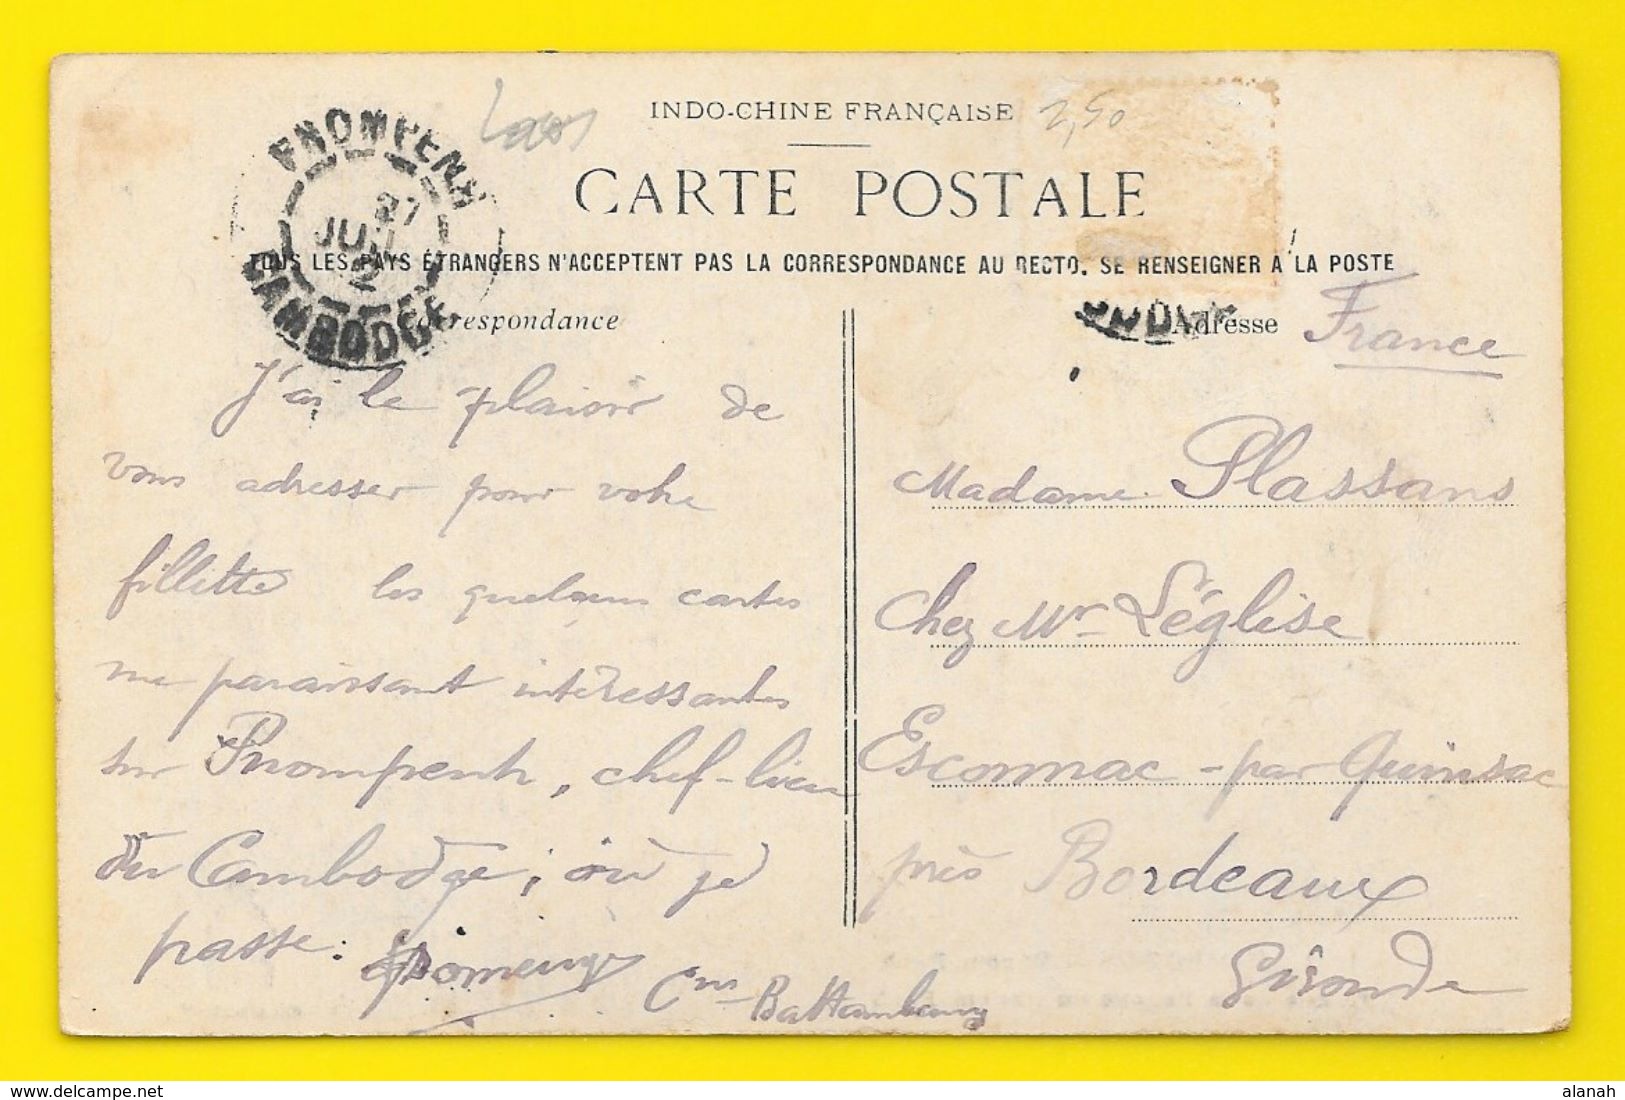 Laos
INDO-CHINE FRANÇAISE 2,50
CARTE POSTALE
PNOMPENH
27
JUIL
CAMBODGE
TOUS LES PAYS ÉTRANGERS N'ACCEPTENT PAS LA CORRESPONDANCE AU RECTO. SE RENSEIGNER A LA POSTE
Correspondance
Adresse
France
J'ai le plaisir de
vous adresser pour votre
fillette les quelques cartes
me paraissant intéressantes
sur Pnompenh, chef-lieu
du Cambodge, où je
passe.
Cⁿ Battambang
Madame Plassans
Chez Mr Léglise
Esconnac - par Quinsac
près Bordeaux
Gironde
alanah